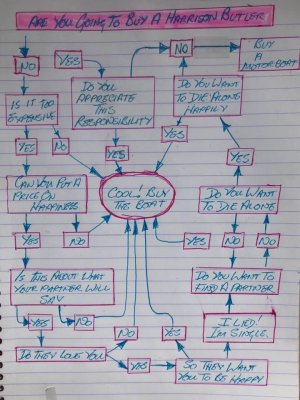 ARE YOU GOING TO BUY A HARRISON BUTLER
NO
YES
NO
BUY
A
MOTORBOAT
IS IT TOO
EXPENSIVE
DO YOU
APPRECIATE
THIS
RESPONSIBILITY
DO YOU WANT
TO DIE ALONE
HAPPILY
YES
NO
YES
YES
YES
CAN YOU PUT A
PRICE ON
HAPPINESS
COOL! BUY
THE BOAT
DO YOU WANT
TO DIE ALONE
YES
NO
YES
NO
NO
IS THIS ABOUT WHAT
YOUR PARTNER WILL
SAY
DO YOU WANT TO
FIND A PARTNER
YES
NO
NO
YES
I LIED.
I'M SINGLE.
DO THEY LOVE YOU
YES
SO THEY WANT
YOU TO BE HAPPY